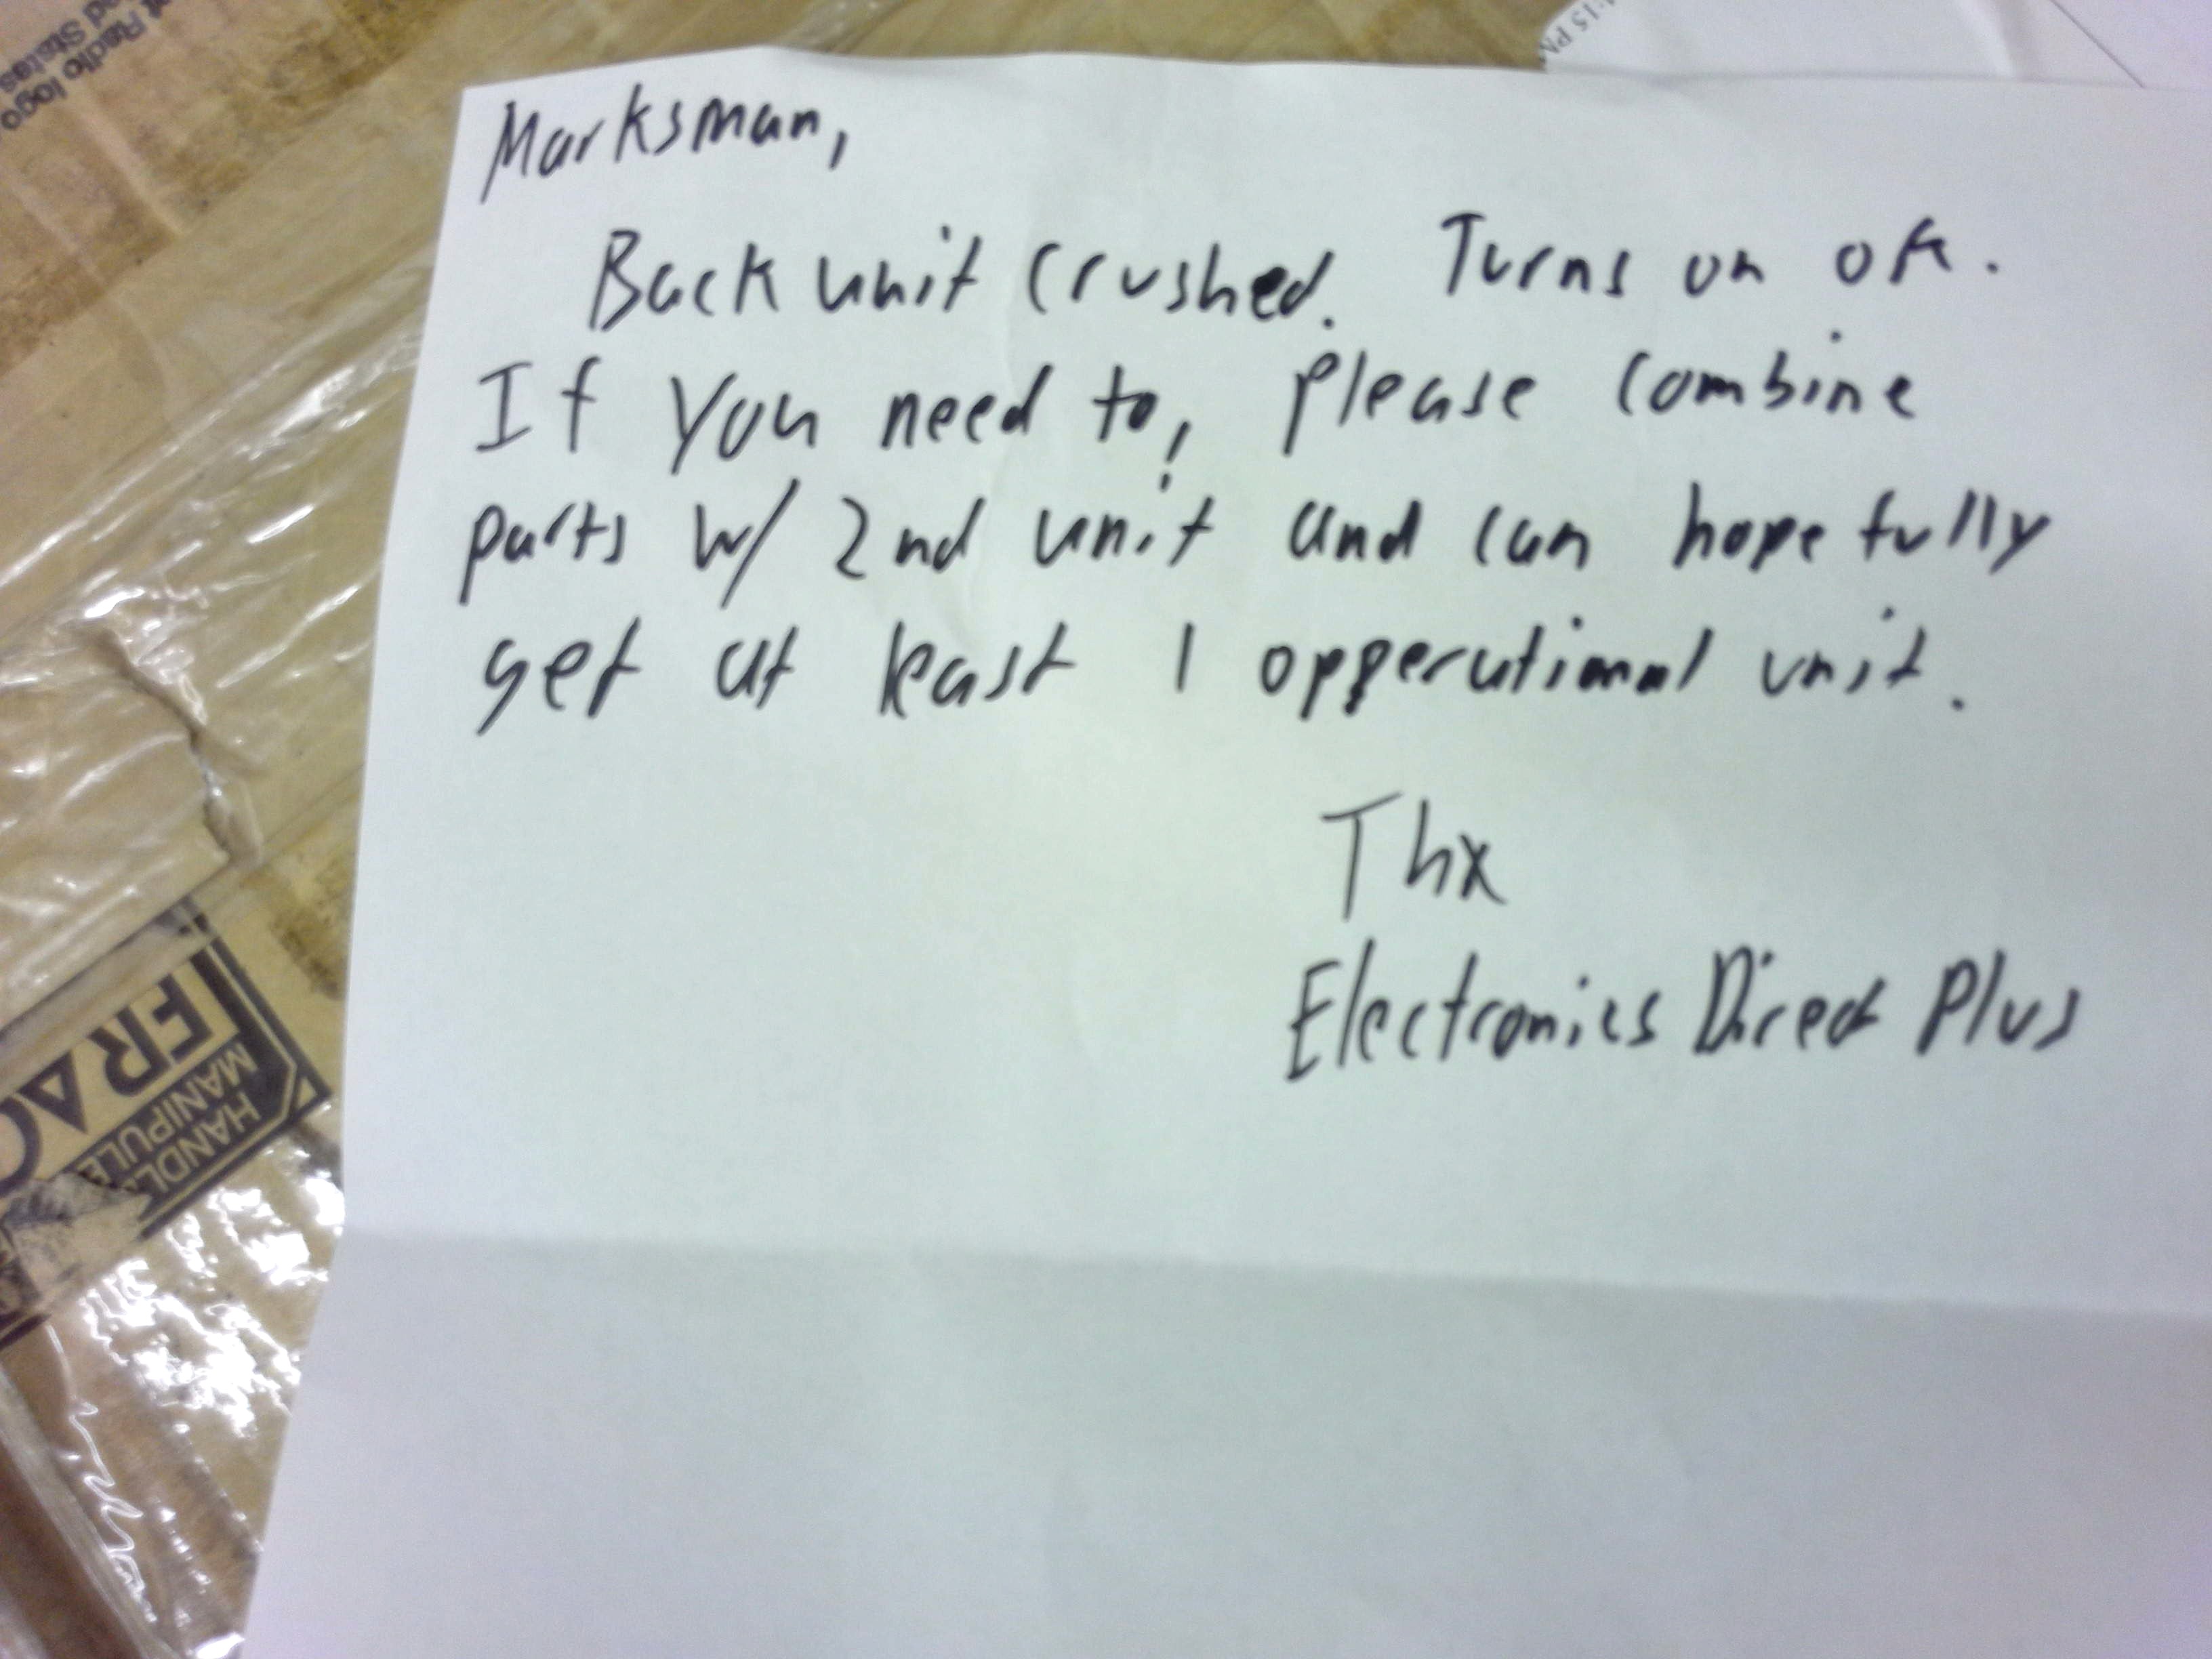 Marksman,
Back unit crushed. Turns on ok.
If you need to, please combine
parts w/ 2nd unit and can hopefully
get at least 1 opperational unit.
Thx
Electronics Direct Plus
:15 PM
Radio logo
ed States
FRAG
HANDL
MANIPULE